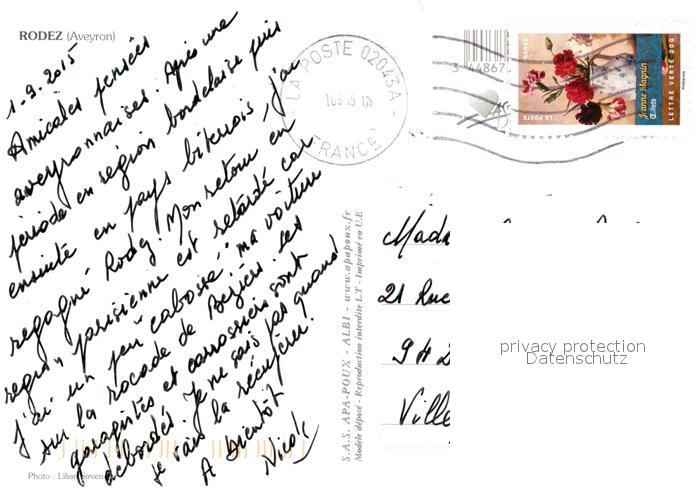 RODEZ (Aveyron)
1.9.2015
Amicales pensées
aveyronnaises. Après une
période en région bordelaise puis
ensuite en pays biterrois j'ai
regagné Rodez. Mon retour en
région parisienne est retardé car
j'ai un peu "cabossé" ma voiture
sur la rocade de Béziers. Les
garagistes et carrossiers sont
débordés. Je ne sais pas quand
je vais la récupérer.
A bientôt
Nicole
Photo : Lilian Sirven
S.A.S. APA-POUX - ALBI - www.apapoux.fr
Modèle déposé - Reproduction interdite L.T - Imprimé en U.E
LA POSTE 02043A
FRANCE
3 44867
LA POSTE
FRANCE
Jeanne Magnin
Œillets
LETTRE VERTE 20g
Mada
21 Rue
94
Ville
privacy protection
Datenschutz